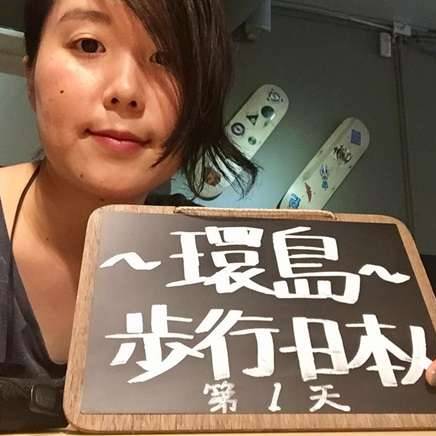 ~環島~
步行日本人
第1天